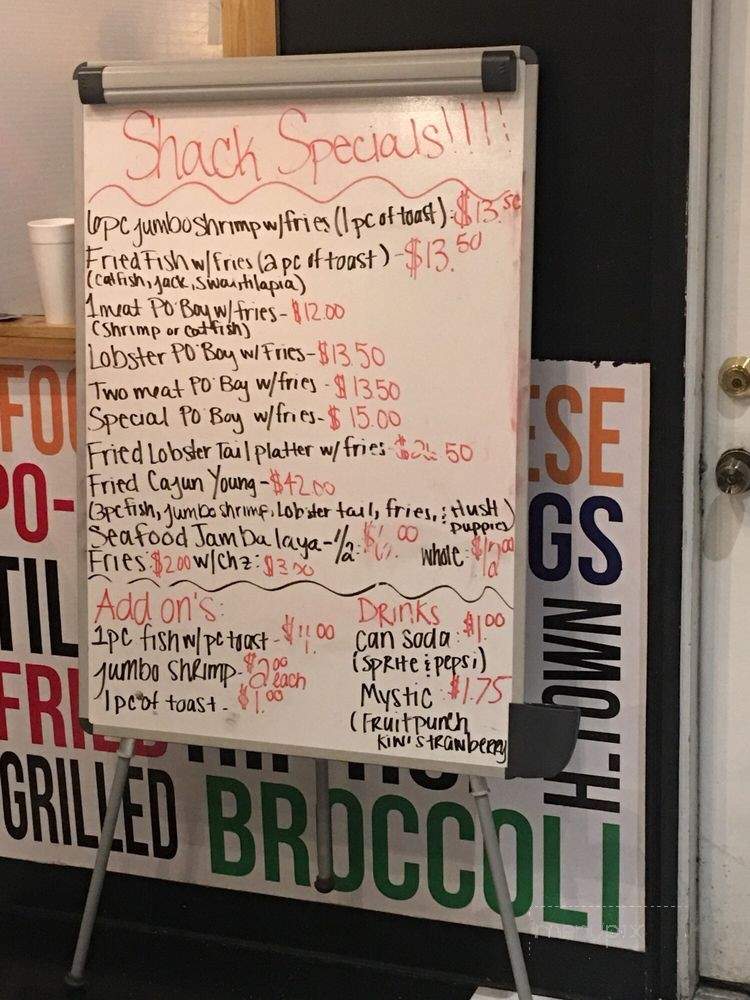 Shack Specials!!!!
6pc jumbo shrimp w/fries (1 pc of toast): $13.50
Fried Fish w/fries (2 pc of toast) - $13.50
(catfish, jack, swai, tilapia)
1 meat PO'Boy w/fries - $12.00
(shrimp or catfish)
Lobster PO'Boy w/Fries - $13.50
Two meat PO'Boy w/fries - $13.50
Special PO'Boy w/fries - $15.00
Fried Lobster Tail platter w/ fries
Fried Cajun Young - $42.00
(3pc fish, jumbo shrimp, Lobster tail, fries, & Hush puppies)
Seafood Jambalaya - 1/2: whole:
Fries: $2.00 w/chz: $3.50
Add on's:
1pc fish w/pc toast -
jumbo shrimp - $2.00 each
1pc of toast - $1.00
Drinks
can soda: $1.00
(sprite & pepsi)
Mystic: $1.75
(Fruit punch
Kiwi strawberry
FOO
ESE
PO-
GS
TIL
H-TOWN
FRIED
GRILLED
BROCCOLI
menupix